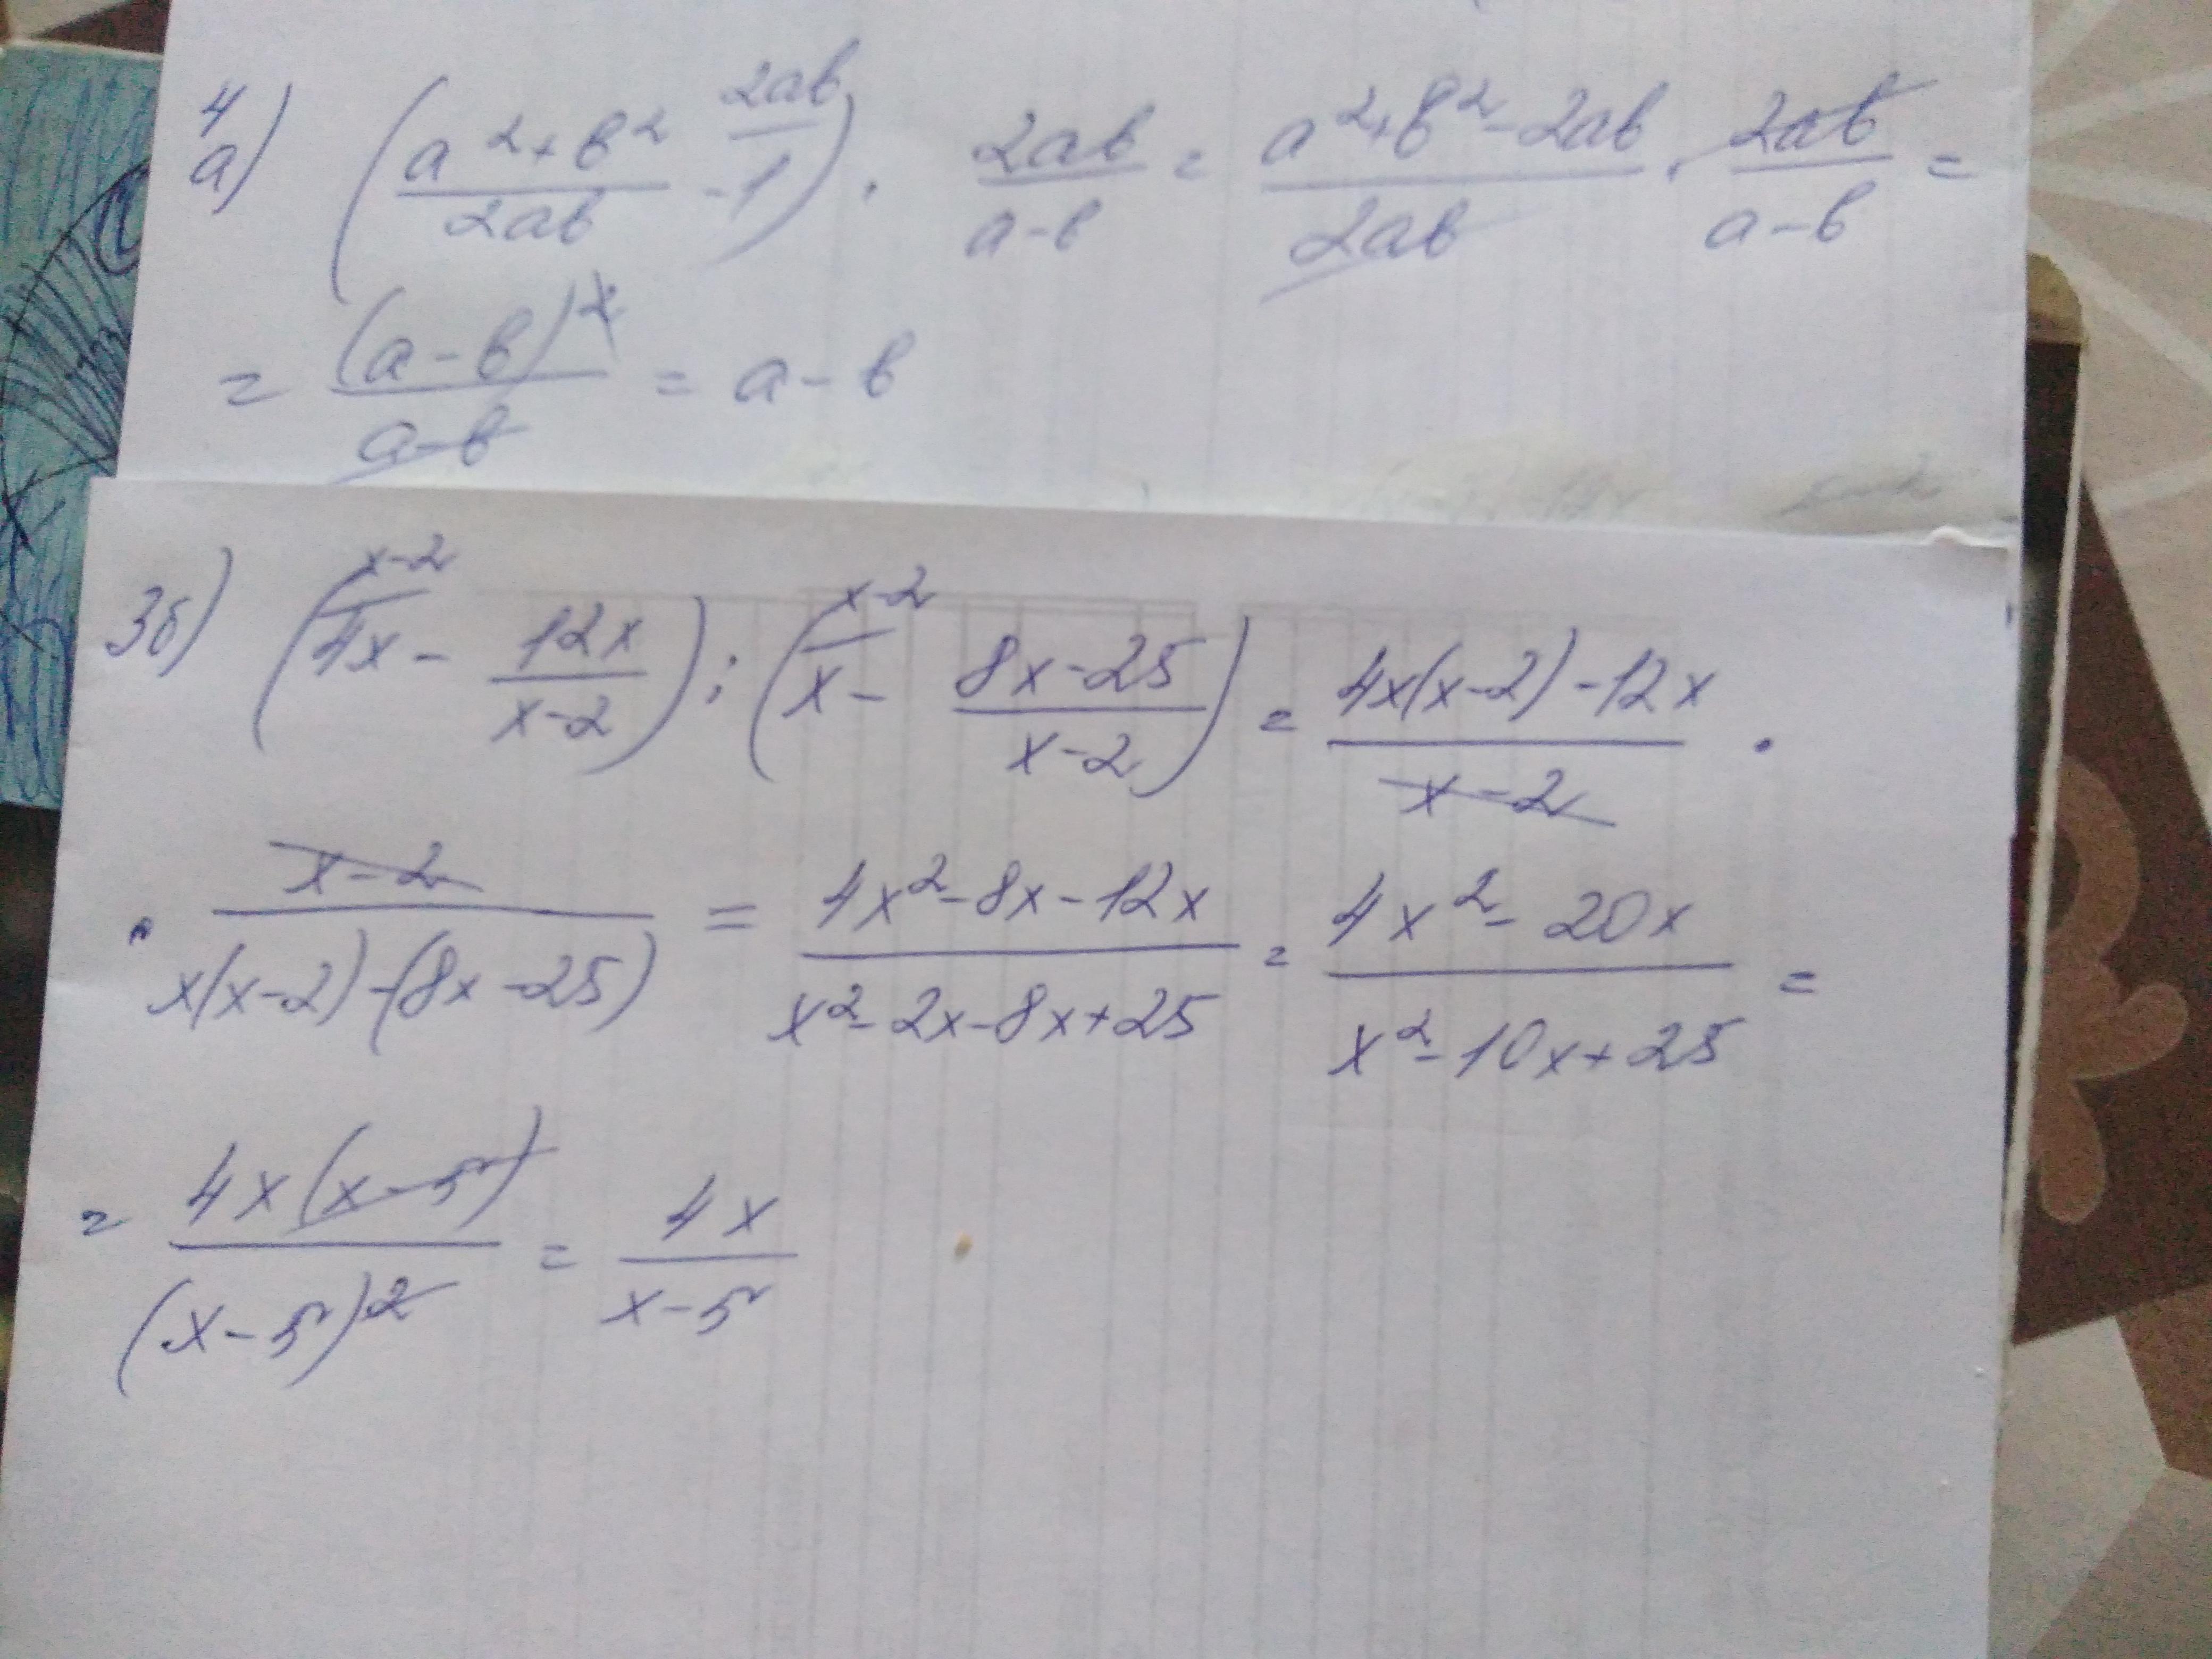 4
а) ((a²+b²)/(2ab) - 1/ 2ab) · 2ab/(a-b) = (a²+b²-2ab)/(2ab) · 2ab/(a-b) =
= (a-b)²/(a-b) = a-b
3б) (4x/ x-2 - 12x/(x-2)) : (x/ x-2 - (8x-25)/(x-2)) = (4x(x-2)-12x)/(x-2) ·
· (x-2)/(x(x-2)-(8x-25)) = (4x²-8x-12x)/(x²-2x-8x+25) = (4x²-20x)/(x²-10x+25) =
= 4x(x-5)/(x-5)² = 4x/(x-5)